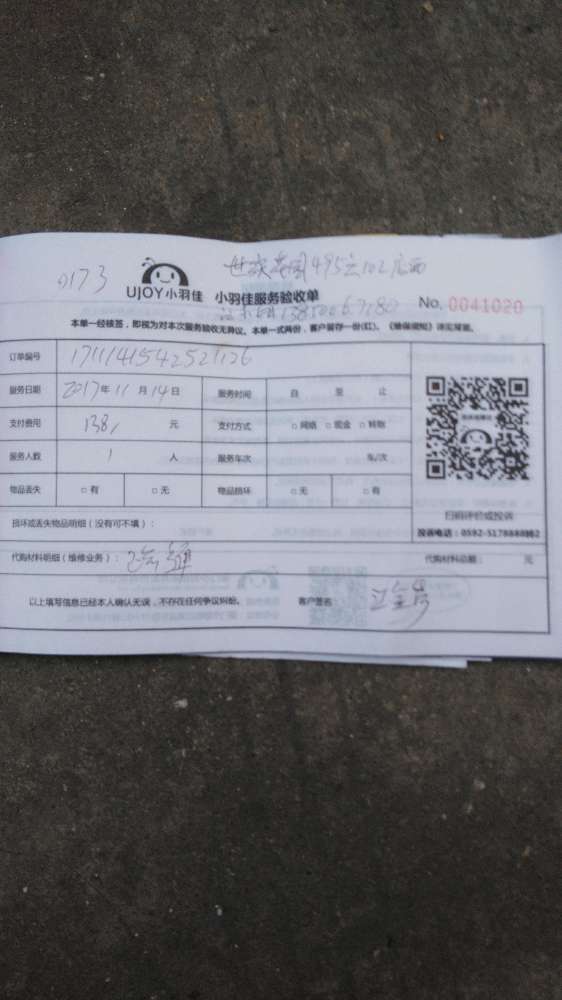 0173
495 102店面
UJOY小羽佳 小羽佳服务验收单
No. 0041020
本单一经核签，即视为对本次服务验收无异议。本单一式两份，客户留存一份(红)。《维保须知》详见背面。
订单编号
服务日期 2017年 11 月 14 日 服务时间 自 至 止
支付费用 138, 元 支付方式 □网络 □现金 □转账
服务人数 1 人 服务车次 车/次
物品丢失 □有 □无 物品损坏 □无 □有
扫码评价或投诉
损坏或丢失物品明细（没有可不填）：
投诉电话：0592-5178888转2
代购材料明细（维修业务）： 代购材料总额： 元
以上填写信息已经本人确认无误，不存在任何争议纠纷。 客户签名